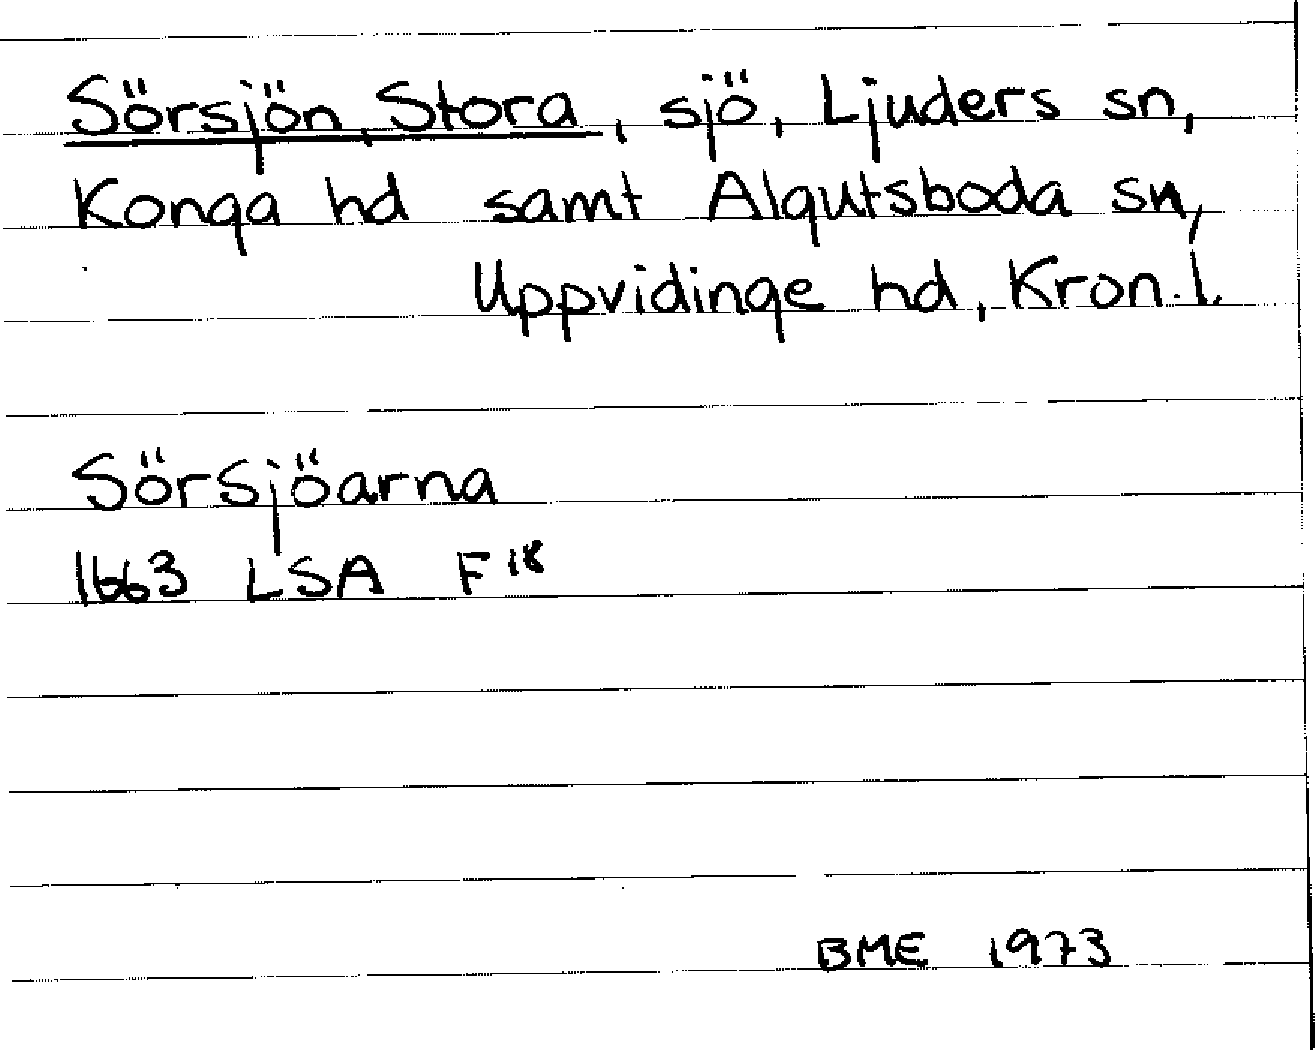 Sörsjön, Stora, sjö, Ljuders sn,
Konga hd samt Algutsboda sn,
Uppvidinge hd, Kron. l.
Sörsjöarna
1663 LSA F18
BME 1973